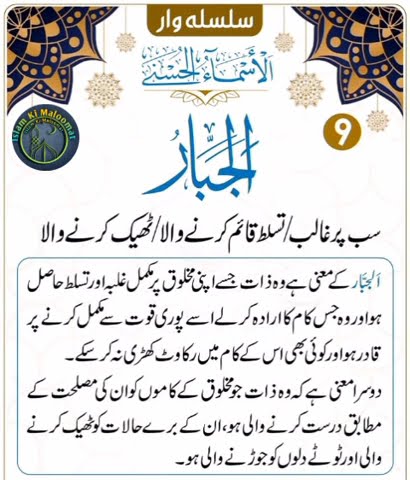 سلسلہ وار
الأسماء الحسنیٰ
Islam Ki Maloomat
9
الجبّار
سب پر غالب/تسلط قائم کرنے والا/ٹھیک کرنے والا
الجبّار کے معنی ہے وہ ذات جسے اپنی مخلوق پر مکمل غلبہ اور تسلط حاصل
ہو اور وہ جس کام کا ارادہ کرلے اسے پوری قوت سے مکمل کرنے پر
قادر ہو اور کوئی بھی اس کے کام میں رکاوٹ کھڑی نہ کر سکے۔
دوسرا معنی ہے کہ وہ ذات جو مخلوق کے کاموں کو ان کی مصلحت کے
مطابق درست کرنے والی ہو، ان کے برے حالات کو ٹھیک کرنے
والی اور ٹوٹے دلوں کو جوڑنے والی ہو۔